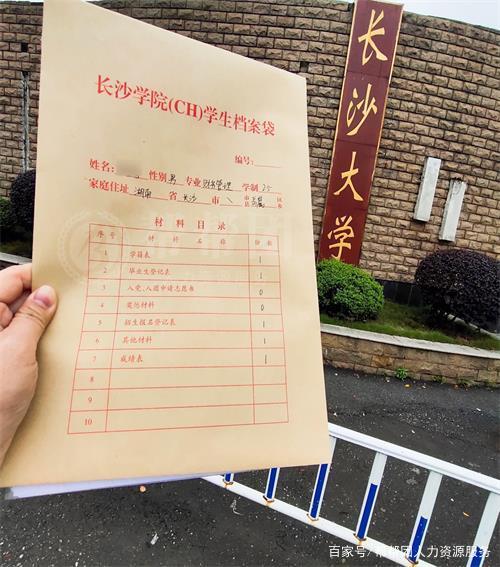 长沙学院(CH)学生档案袋
编号:
姓名: 性别 男 专业 财务管理 学制 2.5
家庭住址 湖南 省 长沙 市 \ 市县 区乡
材料目录
序号 材料名称 份数
1 学籍表 1
2 毕业生登记表 1
3 入党、入团申请志愿书 0
4 奖惩材料 0
5 招生报名登记表 1
6 其他材料 1
7 成绩表 1
8
9
10
长沙大学
百家号/帮帮团人力资源服务